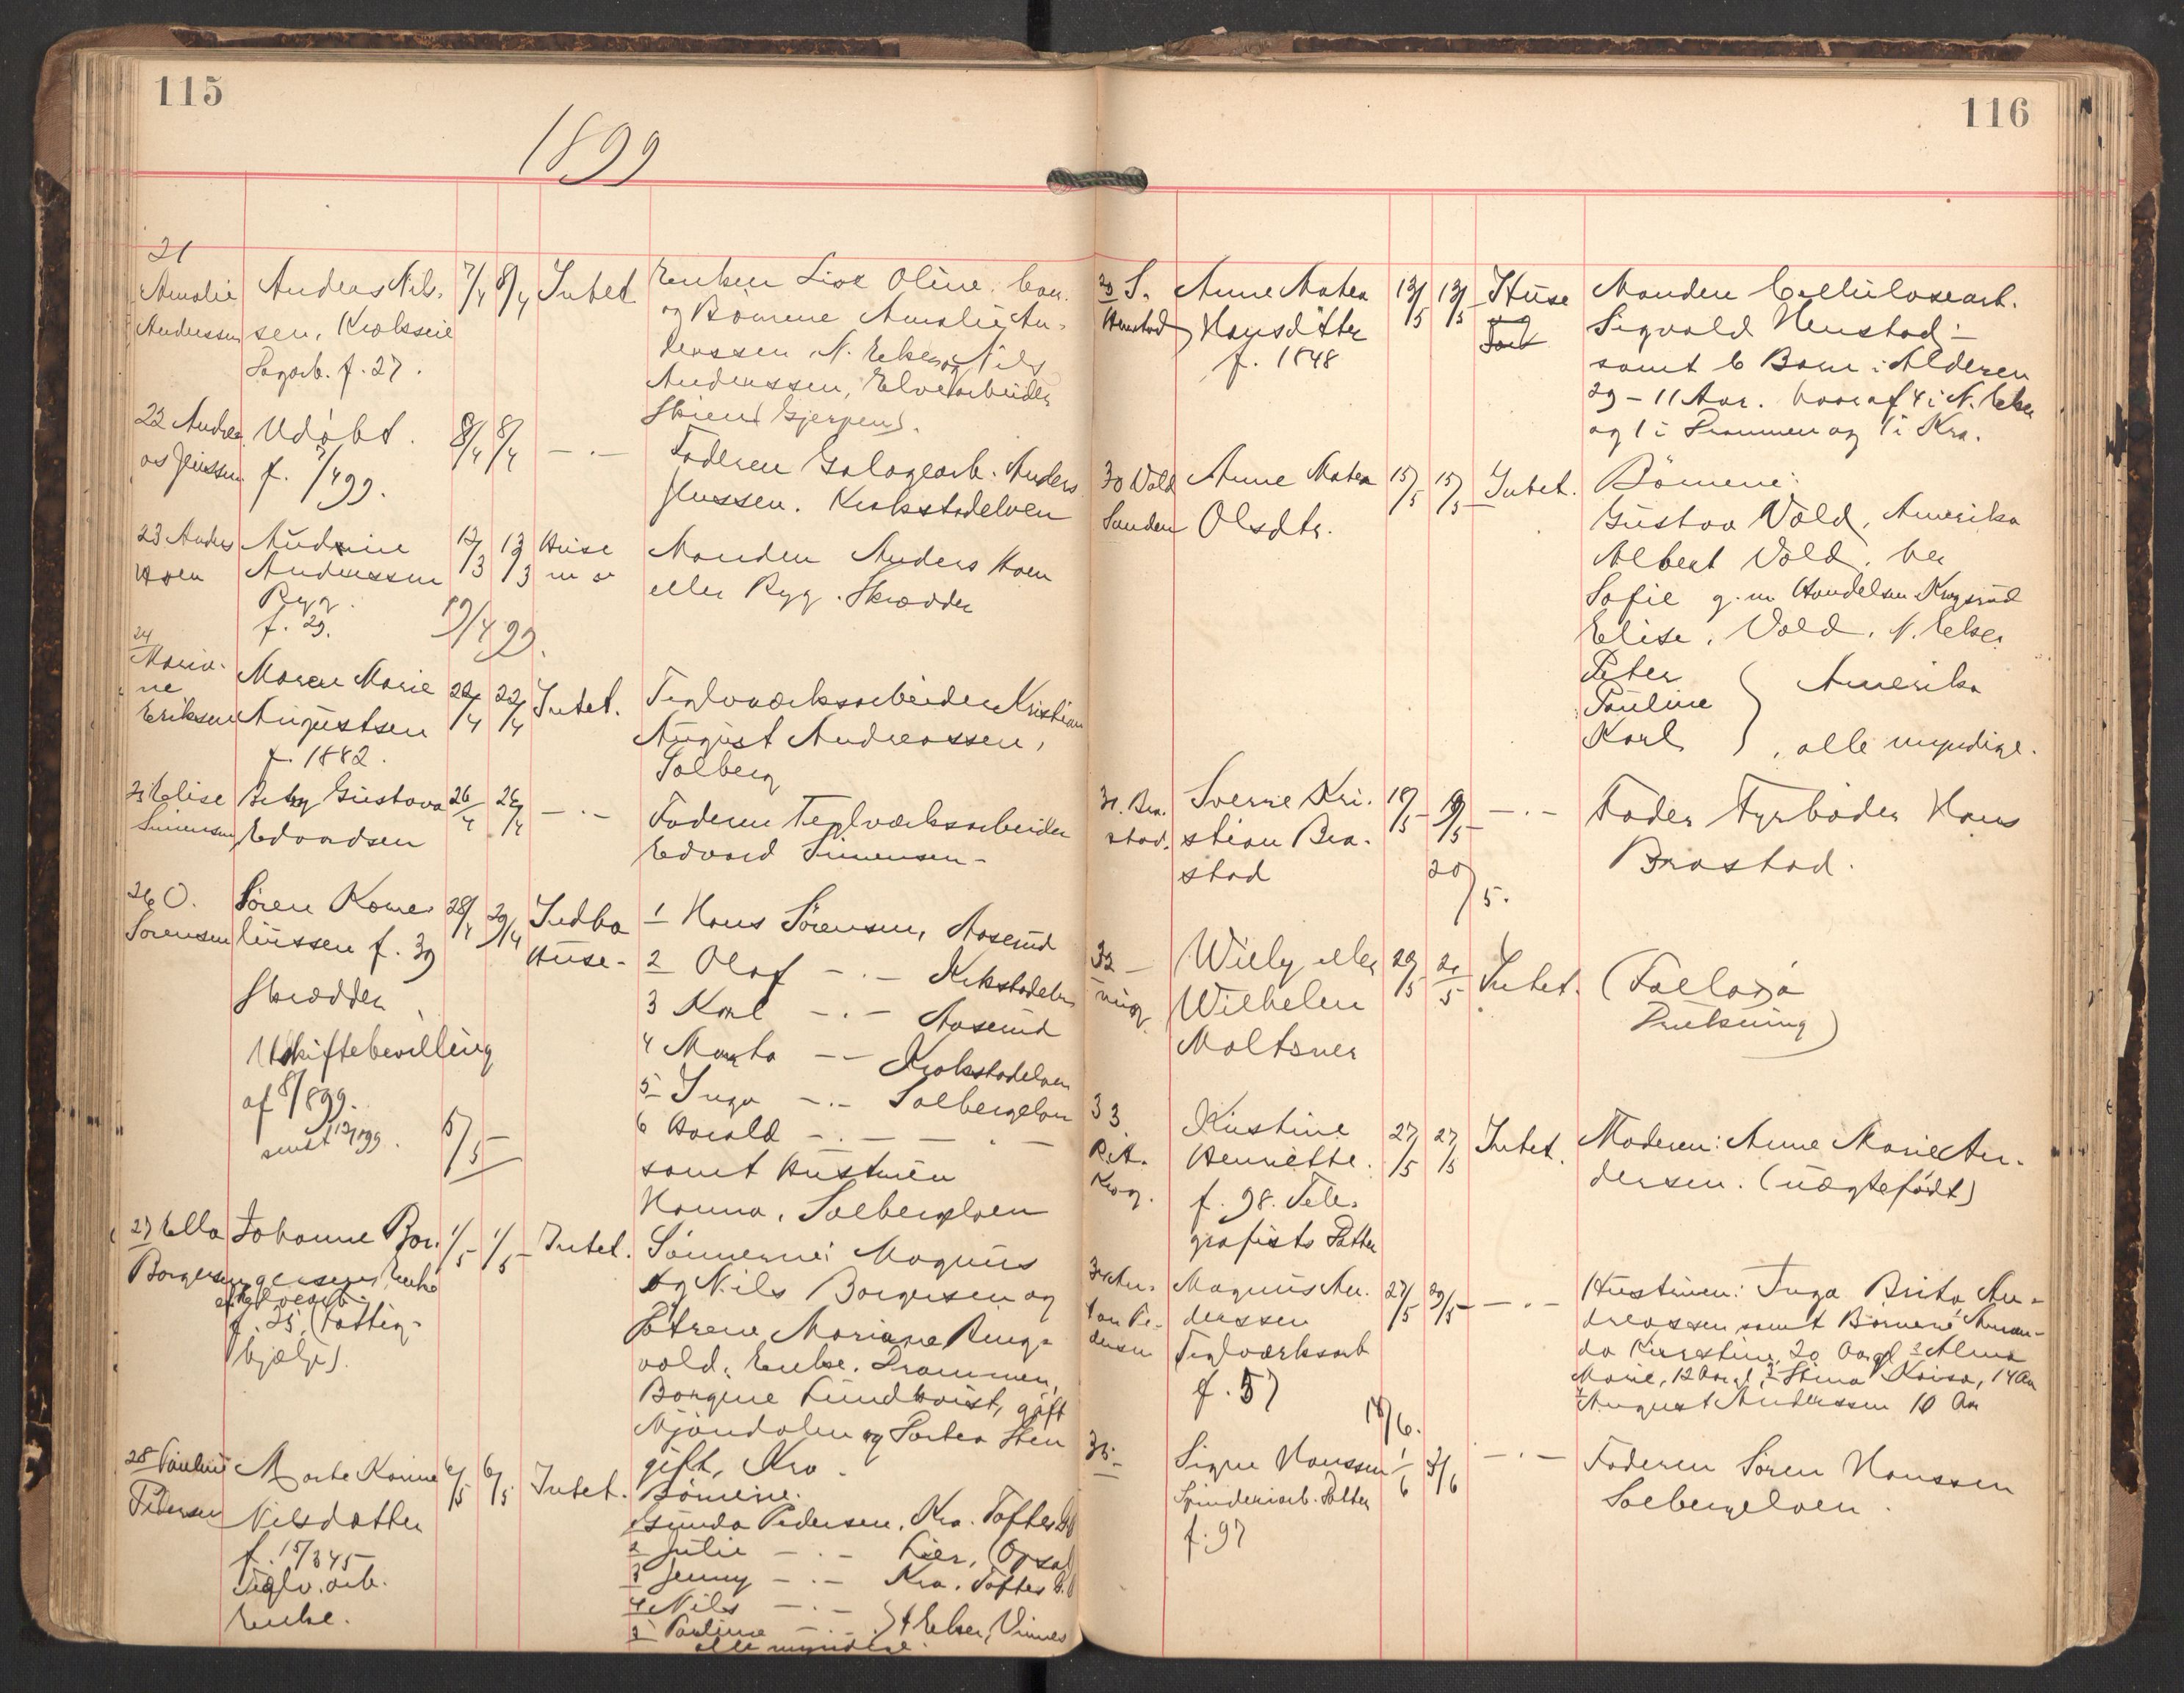 115
1899
21
Amalie
Andersen
Andreas Nils-
sen, Krokseie
Sagarb. f. 27.
7/4 8/4 Intet
Enken Lise Oline. Coer.
og Börnene Amalie An-
derssen N. Eker og Nils
Anderssen, Elvearbeider
Skien (Gjerpen).
22 Andre-
as Jenssen
Udöbt.
f. 7/4 99.
8/4 8/4 — . —
Faderen Galagearb. Anders
Jenssen. Krokstadelven
23 Anders
Hoen
Andrine
Anderssen
Ryg.
f. 29.
12/3 13/3 Huse
Manden Anders Hoen
eller Ryg. Skrædder
19/4 99.
24
Maria-
ne
Eriksen
Maren Marie
Augustsen
f. 1882.
22/4 22/4 Intet.
Teglværksarbeider Kristian
August Andreassen,
Solberg
25 Elise
Simensen
Betsy Gustava
Edvardsen
26/4 26/4 — . —
Faderen Teglværksarbeider
Edvard Simensen -
26 O.
Sorensen
Sören Korne-
liussen f. 39
Skrædder
Uskiftebevilling
af 8/8 99.
28/4 29/4 Indbo
Huse-
5/5
1 Hans Sörensen, Aaserud
2 Olaf — . — Krokstadelven
3 Karl — . — Aaserud
4 Marta — — Krokstadelven
5 Inga — . — Solbergelven
6 Harald — . — — . —
samt Hustruen
Hanna, Solbergelven
27 Ella
Borgersen
Johanne Bor-
gersen, Enke
f. 25, (Fattig-
hjælp).
1/5 1/5 Intet.
Sönnerne: Magnus
og Nils Borgersen og
Dötrene Mariane Ring-
vold, Enke. Drammen,
Borgine Lundkvist, gift
Mjöndalen og Sartea Sten
gift, Kra.
28 Pauline
Pedersen
Marte Karine
Nilsdatter
f. 15/3 45
Teglv. arb.
Enke.
6/5 6/5 Intet.
Börnene.
1 Gunda Pedersen, Kra. Toftes G.
2 Julie — . — Lier, (Opsal)
3 Jenny — . — Kra. Toftes G.
4 Nils — . —
5 Pauline — . — } N Eker, Vinnes
alle myndige.
116
29 S.
Henstad
Anne Matea
Hansdatter
f. 1848
13/5 13/5 Huse
Manden Cellulosearb.
Sigvald Henstad -
samt 6 Barn i Alderen
29 - 11 Aar. hvoraf 4 i N. Eker
og 1 i Drammen og 1 i Kra.
30 Vold
Sanden
Anne Matea
Olsdtr.
15/5 15/5 Intet.
Börnene:
Gustav Vold, Amerika
Albert Vold, her
Sofie g. m. Handelsm. Krogsrud
Elise. Vold. N. Eker
Peter
Pauline } Amerika
Karl , alle myndige.
31. Bra-
stad.
Sverre Kri-
stian Bra-
stad
18/5 19/5 — . —
20/5.
Fader Fyrböder Hans
Brastad.
32 —
Willy eller
Wilhelm
Moltsner
20/5 21/5 Intet.
33.
Rit.
Krog.
Kristine
Henriette.
f. 98. Tele-
grafists Datter
27/5 27/5 Intet.
Moderen: Anne Marie An-
dersen. (uægtefödt)
34 An-
ton Pe-
dersen
Magnus An-
derssen
Teglværksarb
f. 57
27/5 29/5 — . —
14/6.
Hustruen: Inga Brita An-
dreassen samt Börnene: 1 Aman-
da Kirstine, 20 Aar gl 2 Alma
Marie, 12 Aar gl, 3 Stina Kaisa, 14 Aar
4 August Anderssen 10 Aar
35 —
Signe Hanssen
Spinderiarb. Datter
f. 97
1/6 3/6 — . —
Faderen Sören Hanssen
Solbergelven.